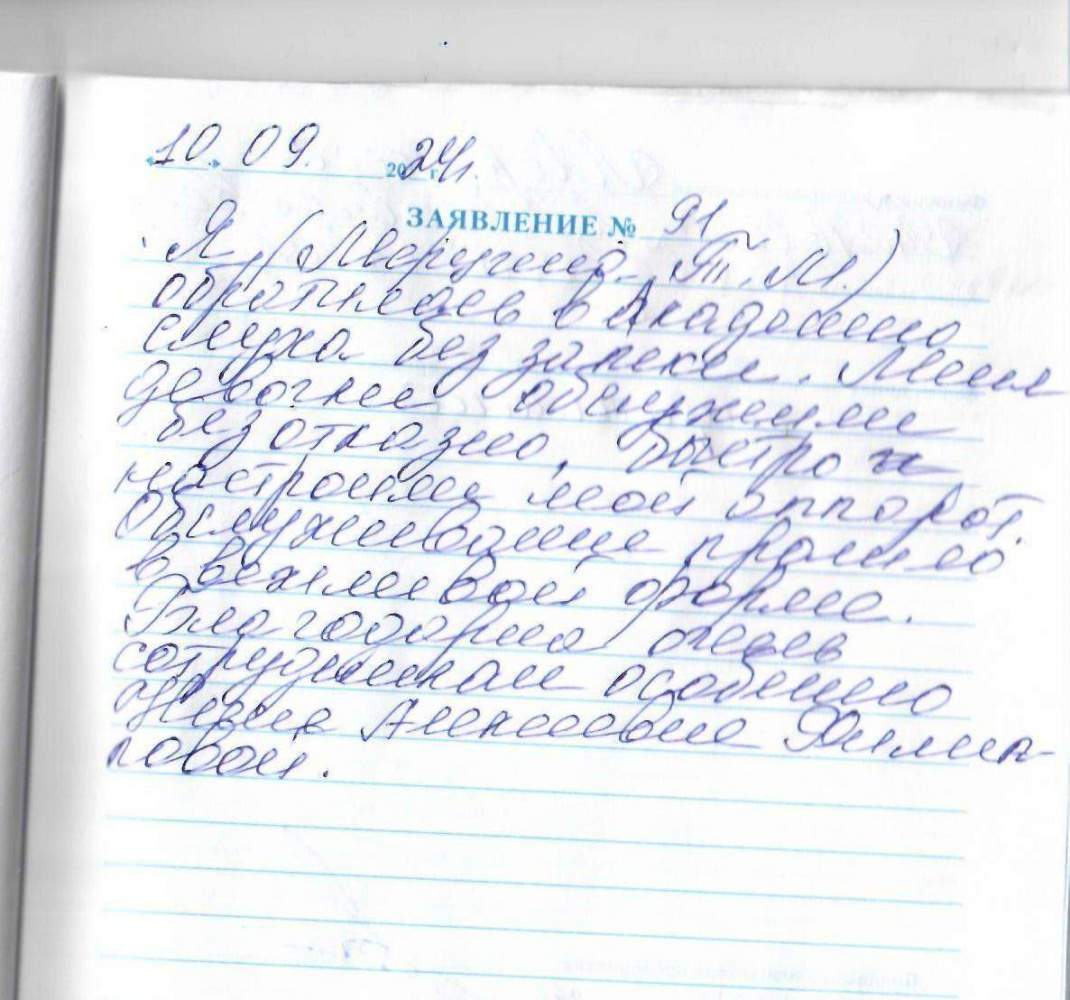 «10» 09. 2024г.
ЗАЯВЛЕНИЕ № 91
Я, (Т. М.)
обратилась в Академию
слуха без записи. Меня
девочки обслужили
безотказно, быстро и
настроили мой аппарат.
Обслуживание прошло
в вежливой форме.
Благодарна очень
сотрудникам особенно
Алексеевне Филип-
повой.